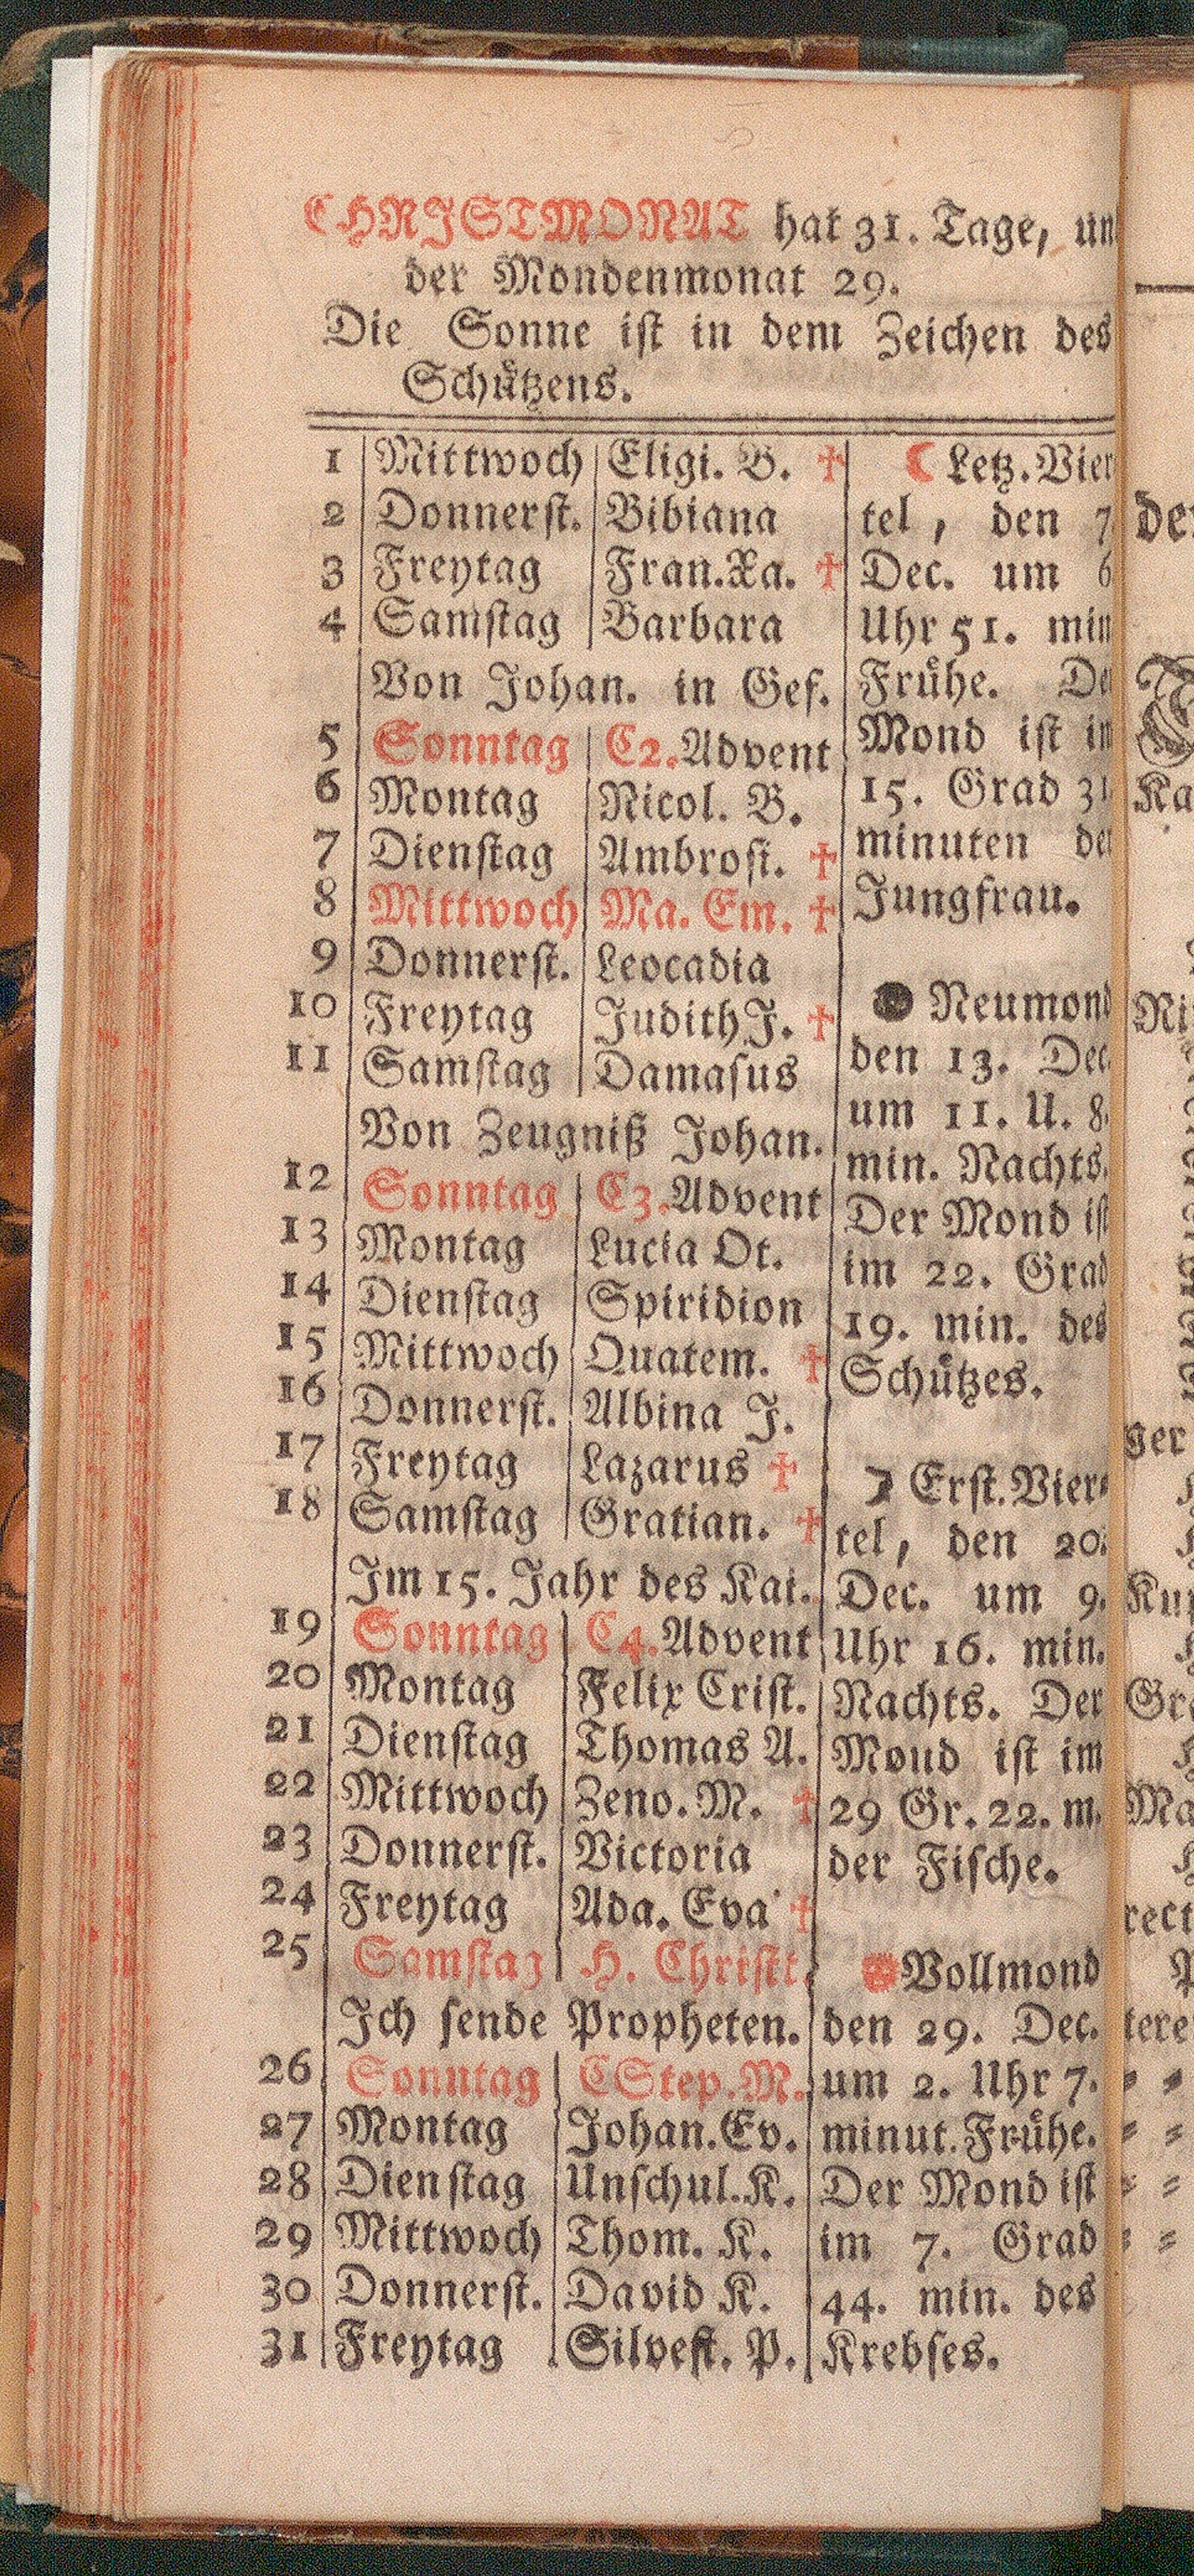 CHRISTMONAT hat 31. Tage, un
der Mondenmonat 29.
Die Sonne ist in dem Zeichen des
Schützens.
1 Mittwoch Eligi. B. ✝
2 Donnerst. Bibiana
3 Freytag Fran.Xa. ✝
4 Samstag Barbara
Von Johan. in Gef.
5 Sonntag C2.Advent
6 Montag Nicol. B.
7 Dienstag Ambrosi. ✝
8 Mittwoch Ma. Em. ✝
9 Donnerst. Leocadia
10 Freytag Judith J. ✝
11 Samstag Damasus
Von Zeugniß Johan.
12 Sonntag C3.Advent
13 Montag Lucia Ot.
14 Dienstag Spiridion
15 Mittwoch Quatem. ✝
16 Donnerst. Albina J.
17 Freytag Lazarus ✝
18 Samstag Gratian. ✝
Im 15. Jahr des Kai.
19 Sonntag C4.Advent
20 Montag Felix Crist.
21 Dienstag Thomas A.
22 Mittwoch Zeno. M. ✝
23 Donnerst. Victoria
24 Freytag Ada. Eva ✝
25 Samstag H. Christt.
Ich sende Propheten.
26 Sonntag CStep.M.
27 Montag Johan.Ev.
28 Dienstag Unschul.K.
29 Mittwoch Thom. K.
30 Donnerst. David K.
31 Freytag Silvest. P.
☾ Letz.Vier
tel, den 7
Dec. um 6
Uhr 51. min
Frühe. De
Mond ist im
15. Grad 31
minuten der
Jungfrau.
● Neumond
den 13. Dec.
um 11. U. 8.
min. Nachts.
Der Mond ist
im 22. Grad
19. min. des
Schützes.
☽ Erst.Vier-
tel, den 20.
Dec. um 9.
Uhr 16. min.
Nachts. Der
Mond ist im
29 Gr. 22. m.
der Fische.
Vollmond
den 29. Dec.
um 2. Uhr 7.
minut. Frühe.
Der Mond ist
im 7. Grad
44. min. des
Krebses.